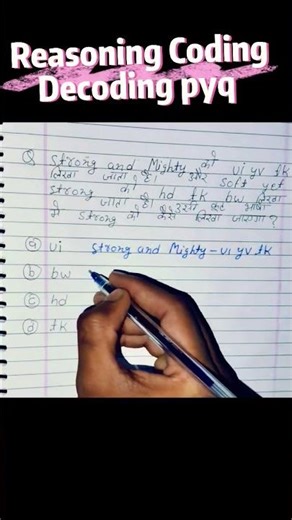 Reasoning Coding
Decoding pyq
Q Strong and Mighty को ui yv tk
लिखा जाता है। और soft yet
strong को hd tk bw लिखा
जाता है।
में strong को कैसे लिखा जाएगा?
(a) ui Strong and Mighty - ui yv tk
(b) bw
(c) hd
(d) tk